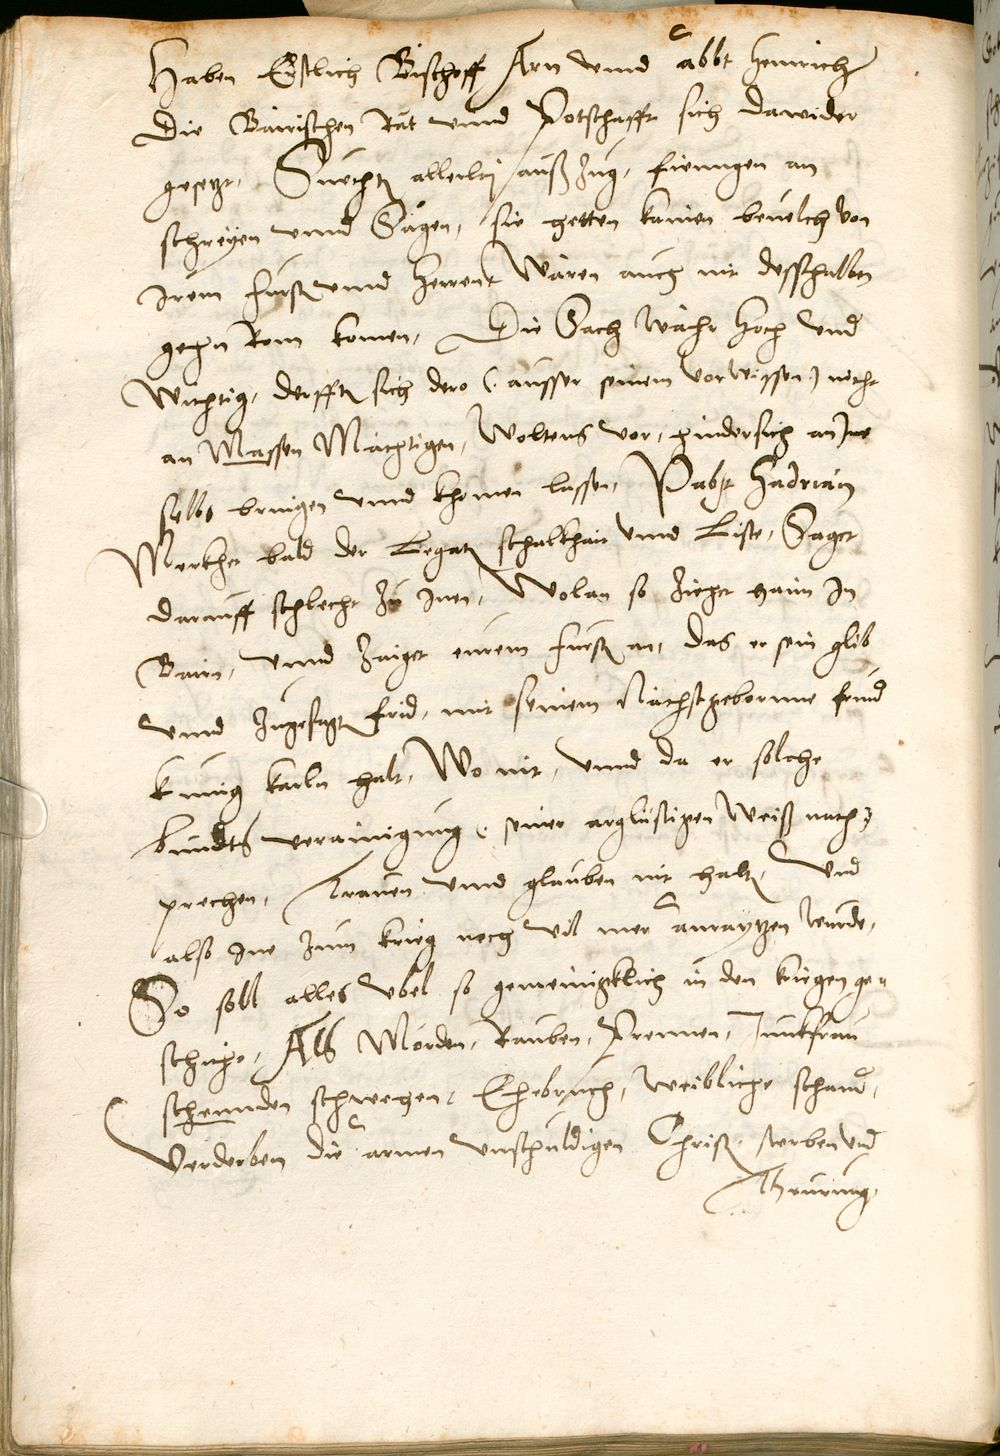 Haben Erstlich Bischoff Arn vnnd abbt Heinrich
Die Bairischen Rät vnnd Potschafft sich dawider
gesetzt, Suechtn allerley außzüg, fiengen an
schreyen vnnd Sagen, sie hetten kainen beuelch von
Irem Fürstn vnnd Herrenn Wären auch nit desshalben
gehn Rom komen, Die Sach wäre Hoch vnd
Wichtig, derfftn sich dero (ausser seinem Vorwissen) nicht
an Massen Mächtigen, Woltens vor, hindersich an Ine
selbs bringen vnnd khomen lassen, Pabst Hadrian
Merkhet bald der Legatn schalkhait vnnd Liste, Saget
darauff schlecht Zu Inen, Wolan so Ziehet haim In
Bairn, vnnd Zaiget eurem Fürstn an, das er sein glib
vnnd Zugesagtn frid, mit seinem Nächstgebornne freund
Künig Karln halt, Wo nit, vnnd da er solche
bundts verainigung, seiner arglüstigen Weiß nach,
prechen, Trauen vnnd glauben nit haltn, Vnd
also Ine zum krieg noch vil mer anraytzen wurde,
So soll alles vbel so gemeinigklich in den kriegen ge=
schicht, Als Mörden, Rauben, Prennen, Junckfrau
schennden schwechen, Ehebruch, Weibliche schand,
Verderben die armen vnschuldigen Christn, sterben vnd
Theurung,